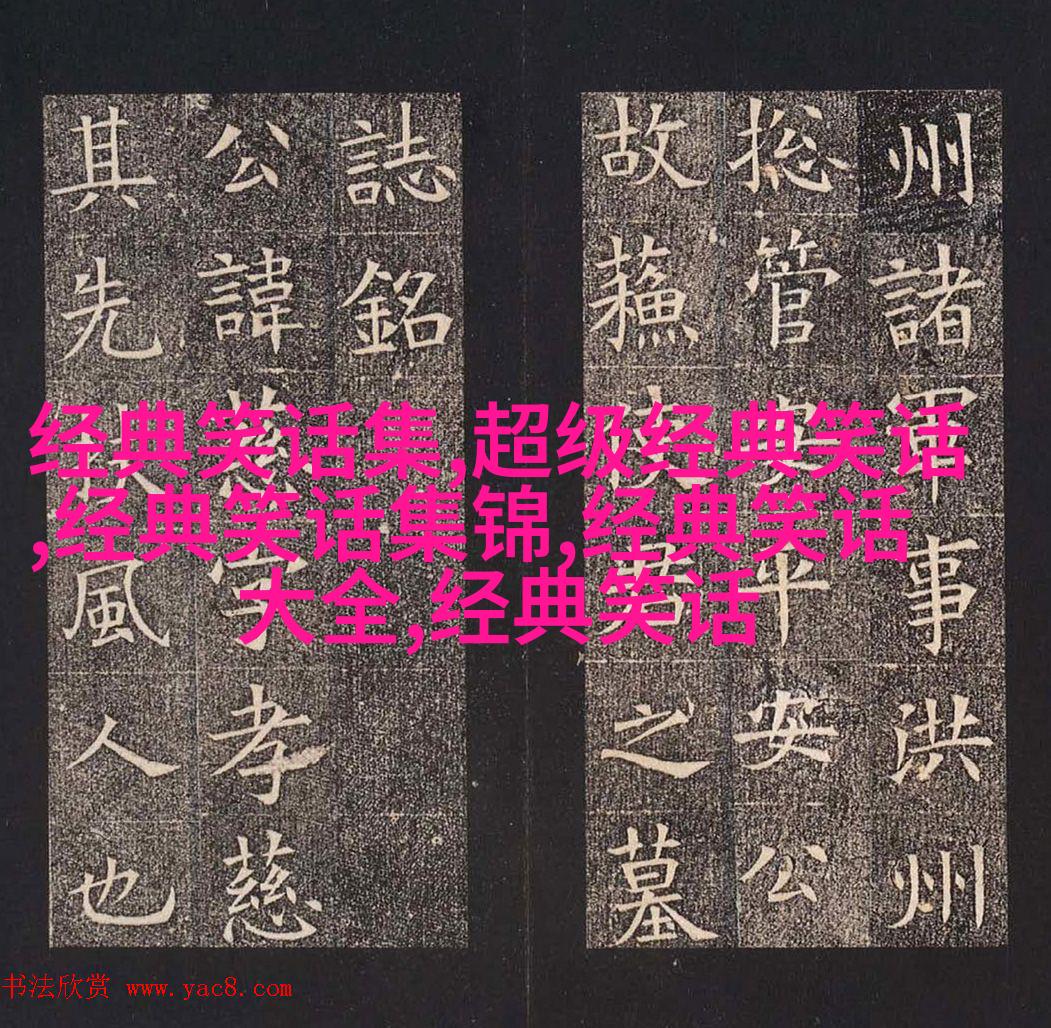 州諸軍事洪州
捴管安平安公
故蘓使君之墓
誌銘
公諱慈字孝慈
其先扶風人也
经典笑话集,超级经典笑话
,经典笑话集锦,经典笑话
大全,经典笑话
书法欣赏 www.yac8.com